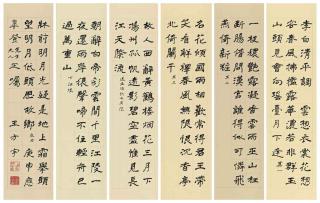 李白清平調 雲想衣裳花想
容春風拂檻露華濃若非群玉
山頭見會向瑤臺月下逢
一枝穠艷露凝香雲雨巫山枉
斷腸借問漢宮誰得似可憐飛
燕倚新粧 其二
名花傾國兩相歡常得君王帶
笑看解釋春風無限恨沉香亭
北倚闌干 其三
故人西辭黃鶴樓煙花三月下
揚州孤帆遠影碧空盡惟見長
江天際流
朝辭白帝彩雲間千里江陵一
日還兩岸猿聲啼不住輕舟已
過萬重山 下江陵
牀前明月光疑是地上霜舉頭
望明月低頭思故鄉 庚申應
王方宇